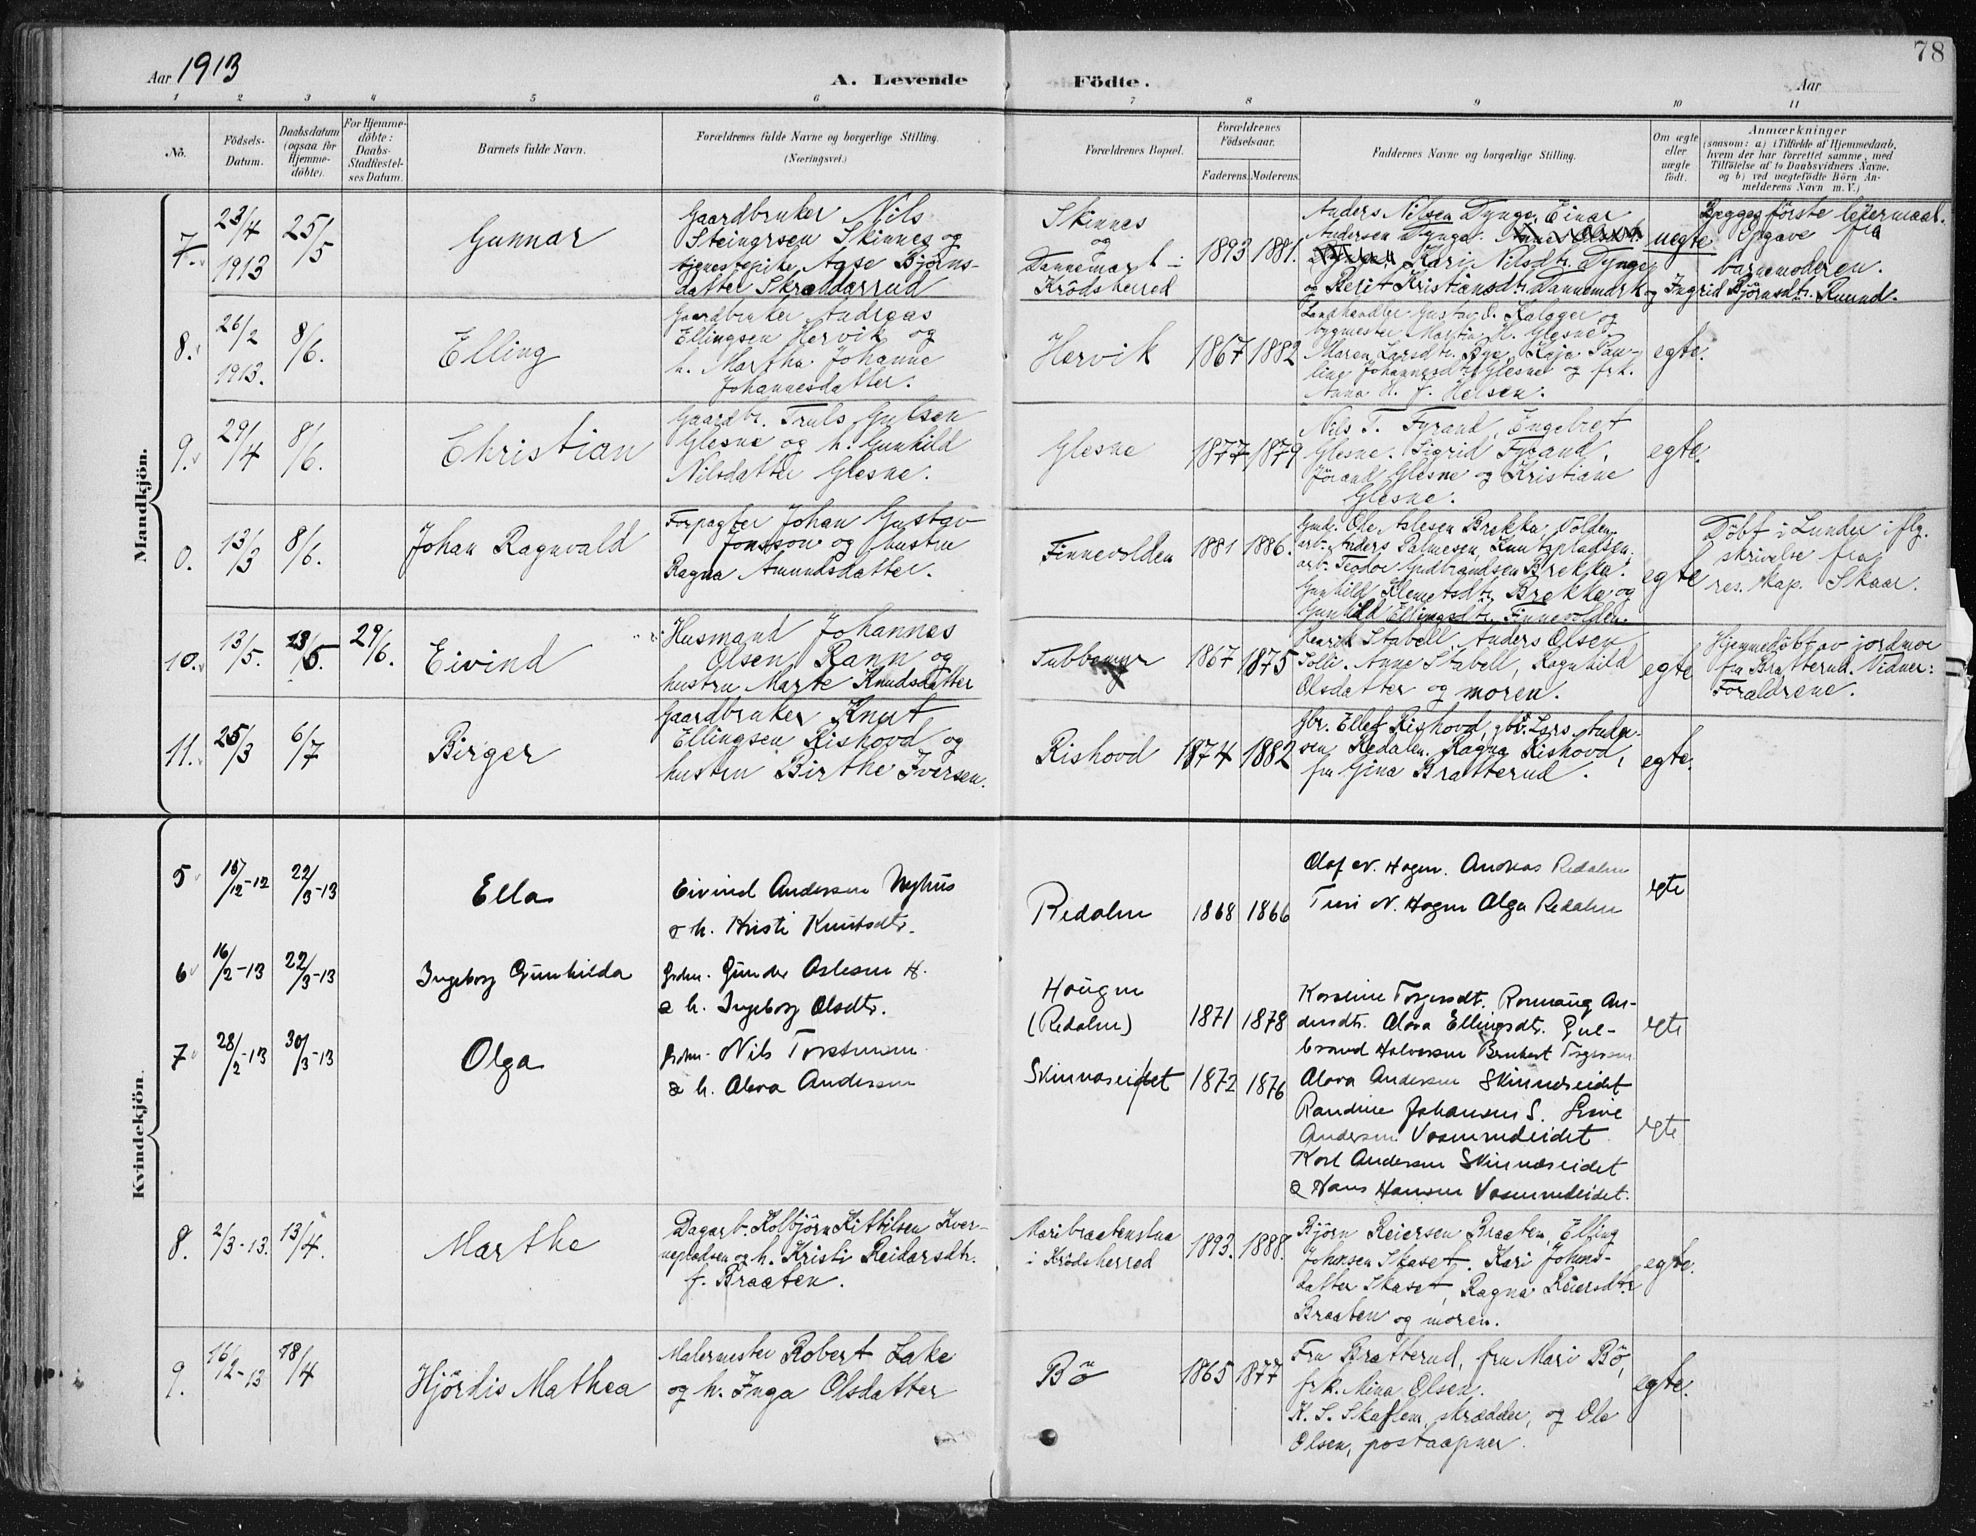 78
Aar 1913
A. Levende Födte.
Aar
1 2 3 4 5 6 7 8 9 10 11
No.
Födsels-Datum.
Daabsdatum (ogsaa for Hjemme-döbte).
For Hjemme-döbte: Daabs-Stadfæstel-ses Datum.
Barnets fulde Navn.
Forældrenes fulde Navne og borgerlige Stilling.
(Næringsvei.)
Forældrenes Bopæl.
Forældrenes Födselsaar.
Faderens. Moderens.
Faddernes Navne og borgerlige Stilling.
Om ægte eller uægte födt.
Anmærkninger
(saasom: a) i Tilfælde af Hjemmedaab, hvem der har forrettet samme, med Tilföielse af to Daabsvidners Navne, og b) ved uægtefödte Börn An-melderens Navn m. V.)
Mandkjön.
7. 23/4 1913 25/5
Gunnar
Gaardbruker Nils
Steingrsen Skinnes og
tjenestepike Aase Björns-
datter Skræddarrud
Skinnes
og
Dannemark i
Krödsherred
1893 1881.
Anders Nilsen Dynge, Einar
Andersen Dynge.
Kari Nilsdtr. Dynge
og Berit Kristiansdtr. Dannemark og Ingrid Björnsdtr. Ruud.
uegte
Begges förste leiermaal.
Opgave fra
barnemoderen.
8. 26/2 1913. 8/6.
Elling
Gaardbruker Andreas
Ellingsen Hervik og
h. Martha Johanne
Johannesdatter.
Hervik
1867 1882
Landhandler Gustav O. Kalager og
bygmester Martin H. Glesne.
Maren Larsdtr. Bye, Kaja Pau-
line Johannesdtr. Glesne og frk.
Anna H. J. Hersen.
egte.
9. 29/4 8/6.
Christian
Gaardbr. Truls Gulsen
Glesne og h. Gunhild
Nilsdatter Glesne.
Glesne
1877 1879
Nils T. Fyrand, Engebret
Glesne. Sigrid Fyrand,
Jörand Glesne og Kristiane
Glesne.
egte.
0. 13/3 8/6.
Johan Ragnvald
Forpagter Johan Gustav
Jonsson og hustru
Ragna Amundsdatter.
Finnevolden
1881 1886.
Gmd. Ole Aslesen Brekka, Volden,
arb. Anders Palmesen,
arb. Teodor Gudbrandsen Brekka.
Gunhild Klemetsdtr. Brekka og
Gunhild Ellingsdtr. Finnevolden.
egte
Döbt i Lunder i flg.
skrivelse fra
res. kap. Skaar.
10. 13/5. 13/5. 29/6.
Eivind
Husmand Johannes
Olsen Rann og
hustru Marte Knudsdatter
Tubbemyr
1867 1875
Henrik Stabell, Anders Olsen
Solli. Anne Stabell, Ragnhild
Olsdatter og moren.
egte
Hjemmedöbt av jordmor
fru Bratterud. Vidner:
Forældrene.
11. 25/3 6/7
Birger
Gaardbruker Knut
Ellingsen Rishovd og
hustru Birthe Iversen.
Rishovd
1874 1882
Gbr. Ellef Rishovd, gbr. Lars Ander-
sen Redalen. Ragna Rishovd,
fru Gina Bratterud.
egte.
Kvindekjön.
5 18/12-12 22/3-13
Ella
Eivind Andersen Nyhus
o h. Kristi Knutsdtr.
Redalen
1868 1866
Olaf N. Hagen. Andreas Redalen
Turi N. Hagen Olga Redalen
egte
6 16/2-13 22/3-13
Ingeborg Gunhilda
Grdm. Gunder Aslesen H.
o h. Ingeborg Olsdtr.
Haugen
(Redalen)
1871 1878
Karoline Torgersdt. Ronnaug An-
dersdtr. Alora Ellingsdtr. Gul-
brand Halvorsen Bernhart Torgersen
egte
7 28/2-13 30/3-13
Olga
Grdm. Nils Torstensen
o h. Alora Andersen
Skinnaseidet
1872 1876
Alora Andersen Skinnaseidet
Randine Johansen S. Line
Andersen Vasenndeidet
Karl Andersen Skinnæseidet
o Hans Hansen Vasenndeidet.
egte
8. 2/3-13. 13/4.
Marthe
Dagarb. Kolbjörn Kittilsen Kver-
nepladsen og h. Kristi Reidarsdtr.
f. Braaten.
Maribraatenstua
i Krödsherred
1893. 1888.
Björn Reiersen Braaten, Elling
Johnsen Skaset. Kari Johns-
datter Skaset, Ragna Reiersdtr.
Braaten og moren.
egte.
9. 16/2-13 18/4
Hjördis Mathea
Malermester Robert Lake
og h. Inga Olsdatter
Bö
1865 1877
Fru Bratterud, fru Mari Bö,
frk. Mina Olsen.
K. S. Skaflem, skrædder, og Ole
Olsen, postaapner.
egte.